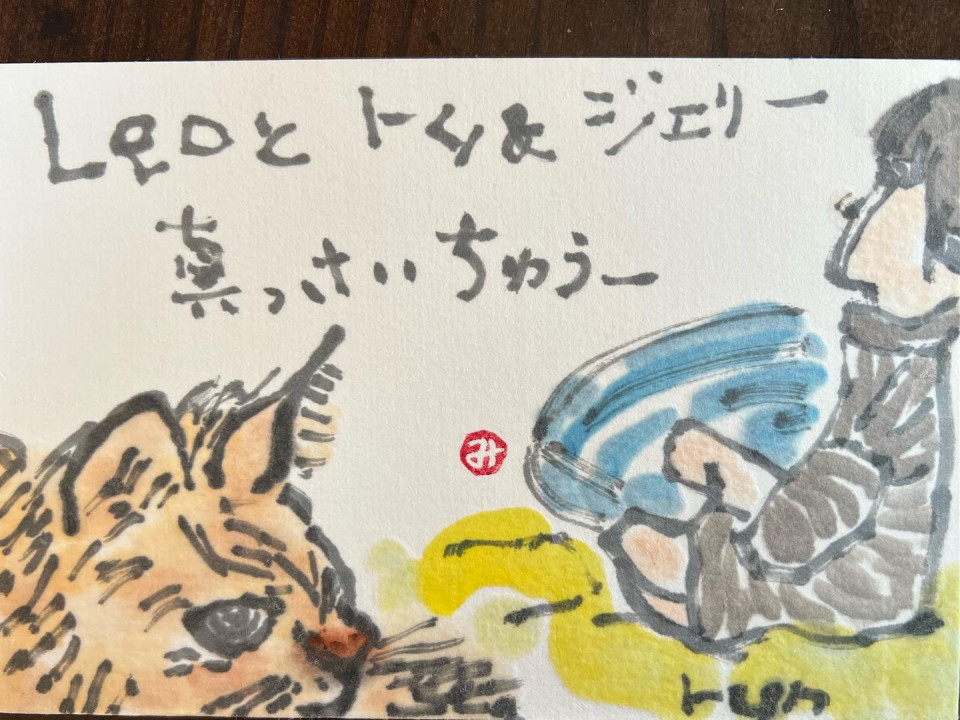 Leoと トム&ジェリー
真っさいちゅうー
み